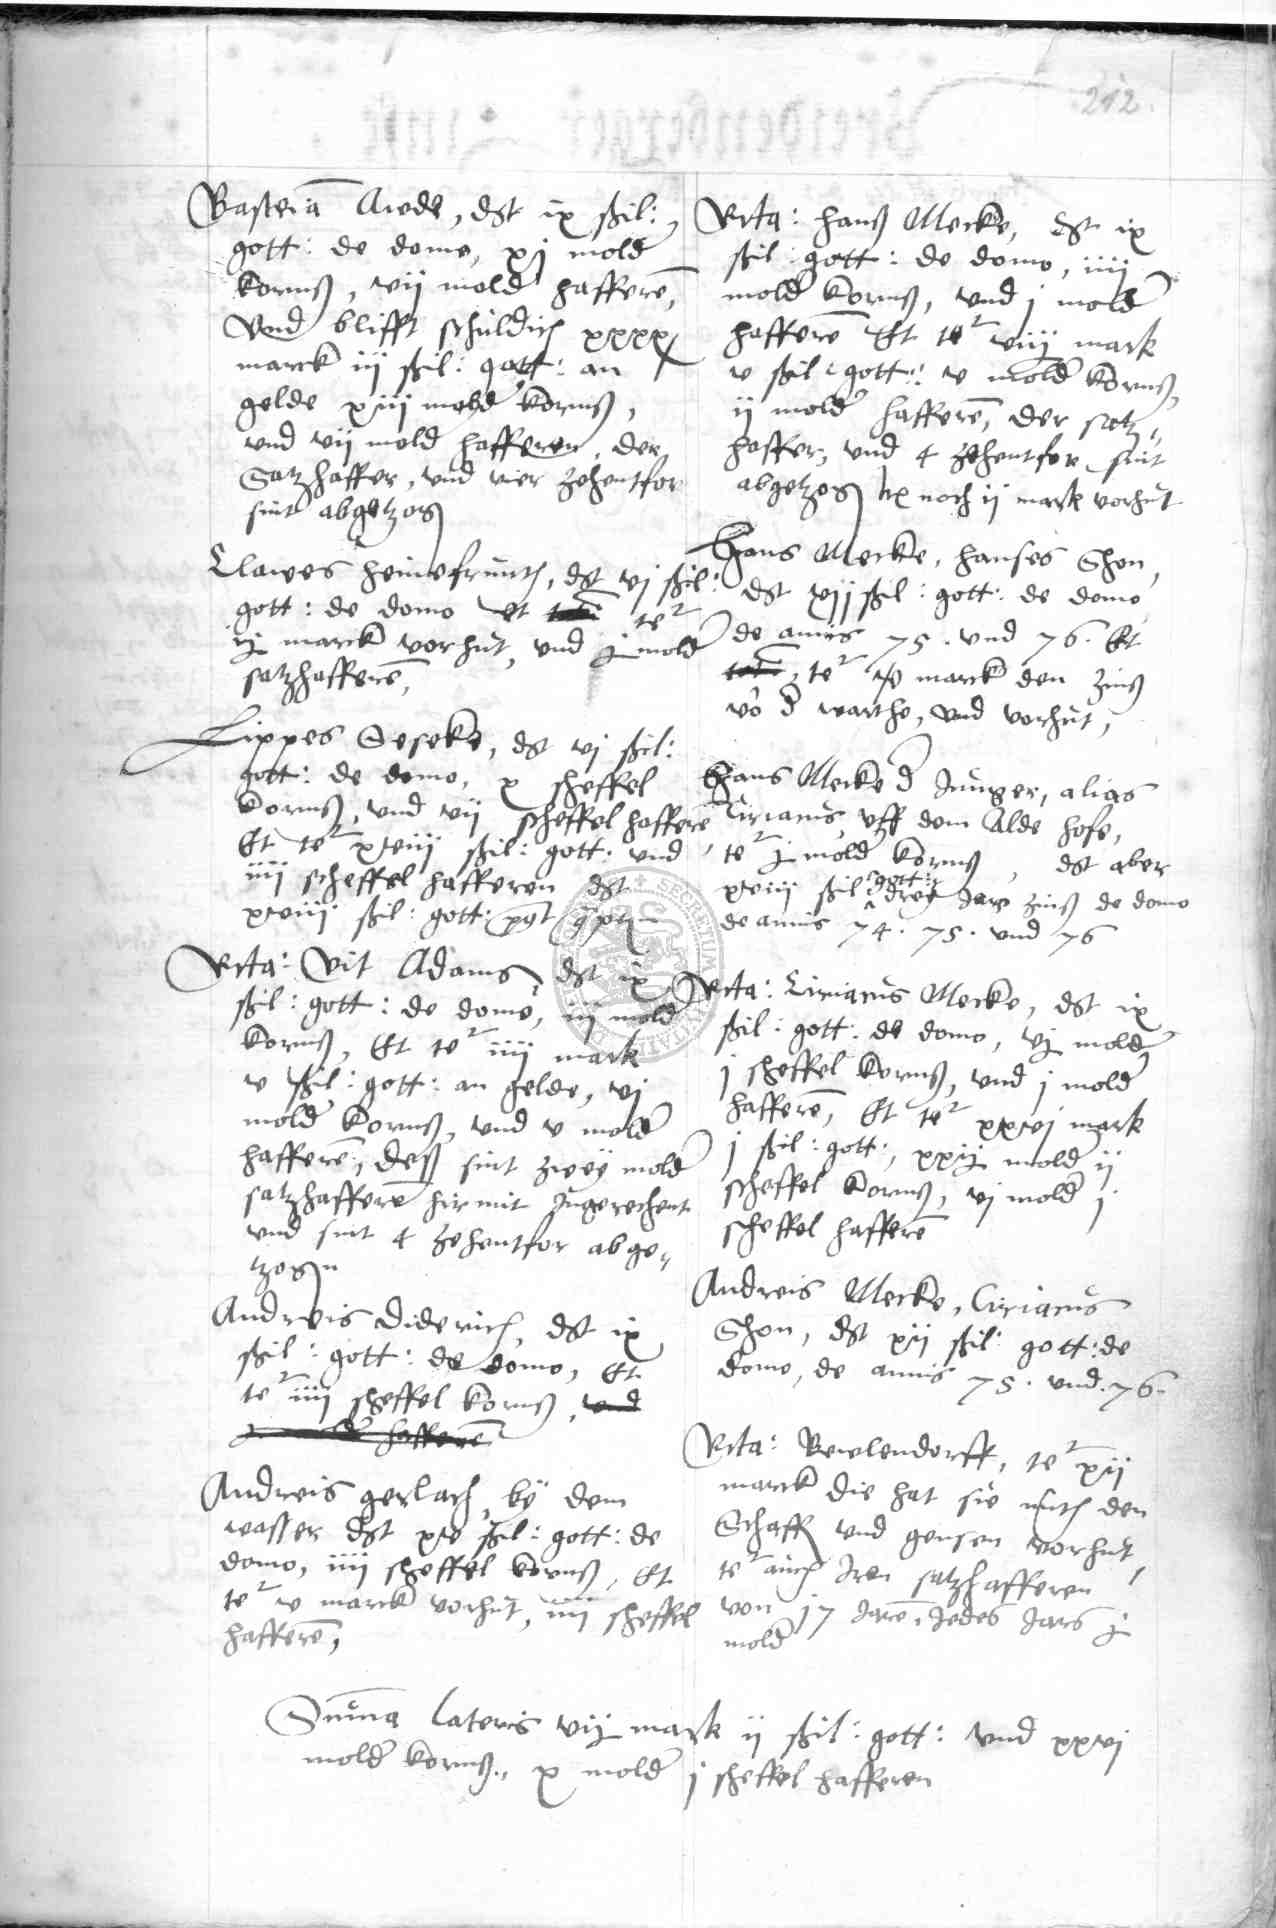 212.
Basteiā Awede, dt ix ßil:
gott: de domo, xj mold
kornß, vij mold hafferē,
Vnd blifft schuldich xxxx
marck iij ßil: gott: an
gelde xiij mold kornß,
vnd vij mold hafferen, der
Satzhaffer, vnd vier zehentfor
sint abgetzog
Clawes heinefrunth, dt vj ßil:
gott: de domo et te͛
ij marck vorhut, vnd j mold
satzhafferē,
Lippes Geseke, dt vj ßil:
gott: de domo, x scheffel
kornß, vnd vij scheffel hafferē,
Et te͛ xviij ßil: gott: vnd
iiij scheffel hafferen dt
xviij ßil: gott:
Rcta: Vit Adams, dt ix
ßil: gott: de domo, iij mold
kornß, Et te͛ iiij mark
v ßil: gott: an gelde, vj
mold kornß, vnd v mold
hafferē, deß sint zweÿ mold
satzhafferē hir mit Ingerechent
vnd sint 4 zehentfor abge-
tzogen
Andreis Diderich, dt ix
ßil: gott: de domo, Et
te͛ iiij scheffel kornß, vnd
hafferē
Andreis gerlach, bÿ dem
wasser dt xv ßil: gott: de
domo, iiij scheffel kornß, Et
te͛ v marck vorhut, iiij scheffel
hafferē,
Rcta: hanß Mecke, dt ix
ßil: gott: de domo, iiij
mold kornß, vnd j mold
hafferē Et te͛ viij mark
v ßil: gott: v mold kornß,
ij mold hafferē, der satz-
haffer, vnd 4 zehentfor sint
abgetzog noch ij mark vorhut
Hans Mecke, hanses Shon,
dt xij ßil: gott: de domo
de annis 75. vnd 76. Et
te͛ marck den zinß
vō d warthe, vnd vorhut,
Hans Mecke d Junger, alias
Ciriacus vff dem Alde hofe,
te͛ j mold kornß, dt aber
xviij ßil: gott: dreÿ Jare zinß de domo
de annis 74. 75. vnd 76
Rcta: Ciriacus Mecke, dt ix
ßil: gott: de domo, vj mold
j scheffel kornß, vnd j mold
hafferē, Et te͛ xxvj mark
j ßil: gott:, xxij mold ij
scheffel kornß, vj mold j
scheffel hafferē
Andreis Mecke, Ciriacus
Shon, dt xij ßil: gott: de
domo, de annis 75. vnd. 76.
Rcta: Rewlendorff, te͛ xij
marck die hat sie mith den
Schaff vnd gensen vorhut,
te͛ auch Iren satzhafferen
von 17 Jarē, Jedes Jars j
mold
Sum̄a lateris vij mark ij ßil: gott: vnd xxvj
mold kornß., x mold j scheffel hafferen